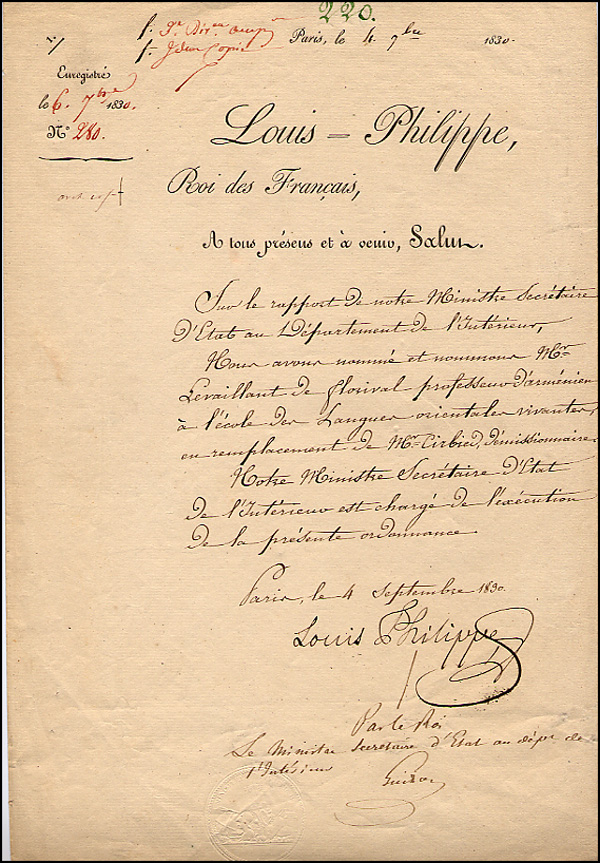 220.
Paris, le 4 7bre 1830.
Enregistré
le 6. 7bre 1830.
N° 280.
Louis-Philippe,
Roi des Français,
A tous présens et à venir, Salut.
Sur le rapport de notre Ministre Secrétaire
d'Etat au Département de l'Intérieur,
Nous avons nommé et nommons Mr
Levaillant de florival professeur d'arménien
à l'école des Langues orientales vivantes,
en remplacement de Mr Cirbied, démissionnaire.
Notre Ministre Secrétaire d'Etat
de l'Intérieur est chargé de l'exécution
de la présente ordonnance
Paris, le 4 Septembre 1830.
Louis Philippe
Par le Roi
Le Ministre Secrétaire d'Etat au dépt de
l'Intérieur
Guizot